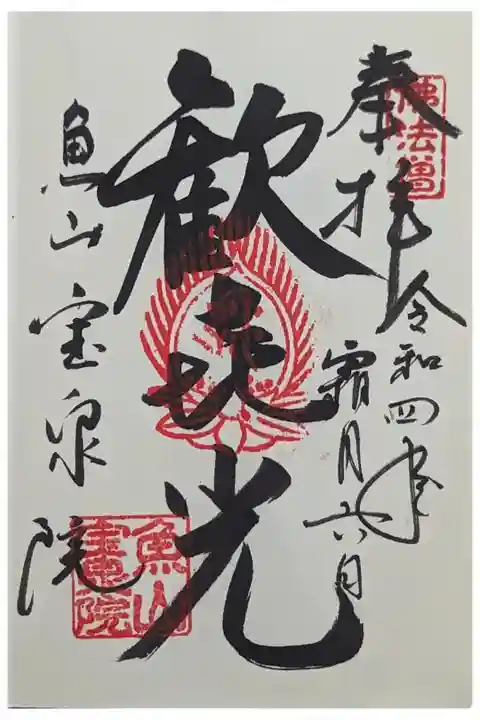 佛法僧
奉拝
令和四年
霜月六日
歓㐂光
魚山宝泉院
魚山
寶院